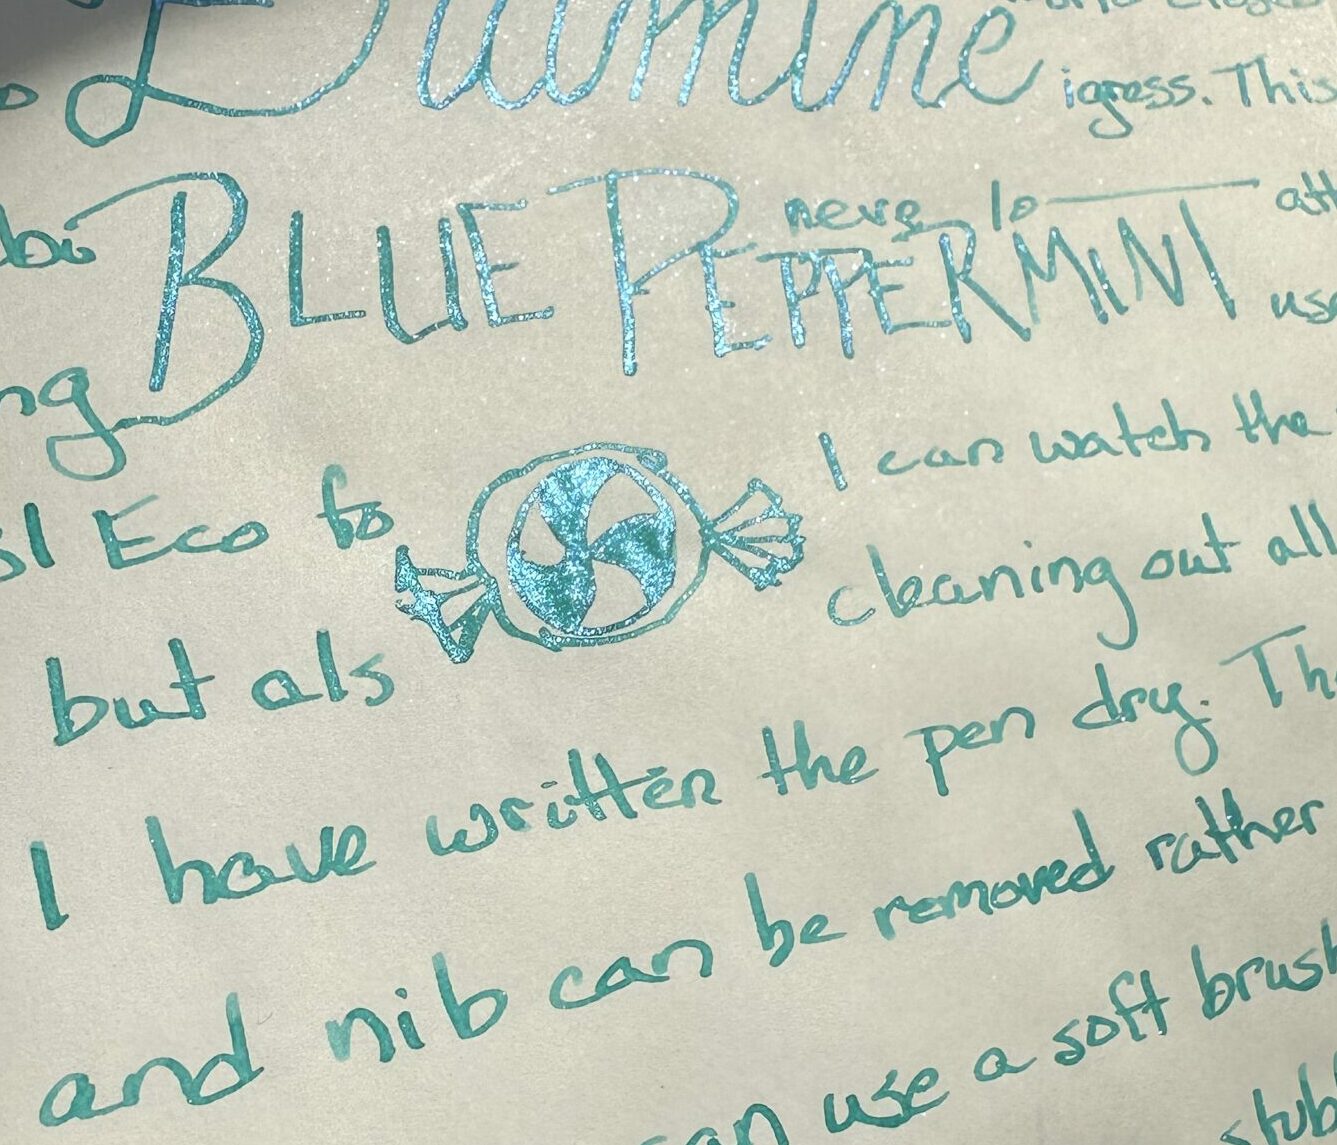 Diamine
igress. This
BLUE PEPPERMINT
never
I can watch the
Eco to
cleaning out all
but als
I have written the pen dry. Th
and nib can be removed rather
can use a soft brush
stub